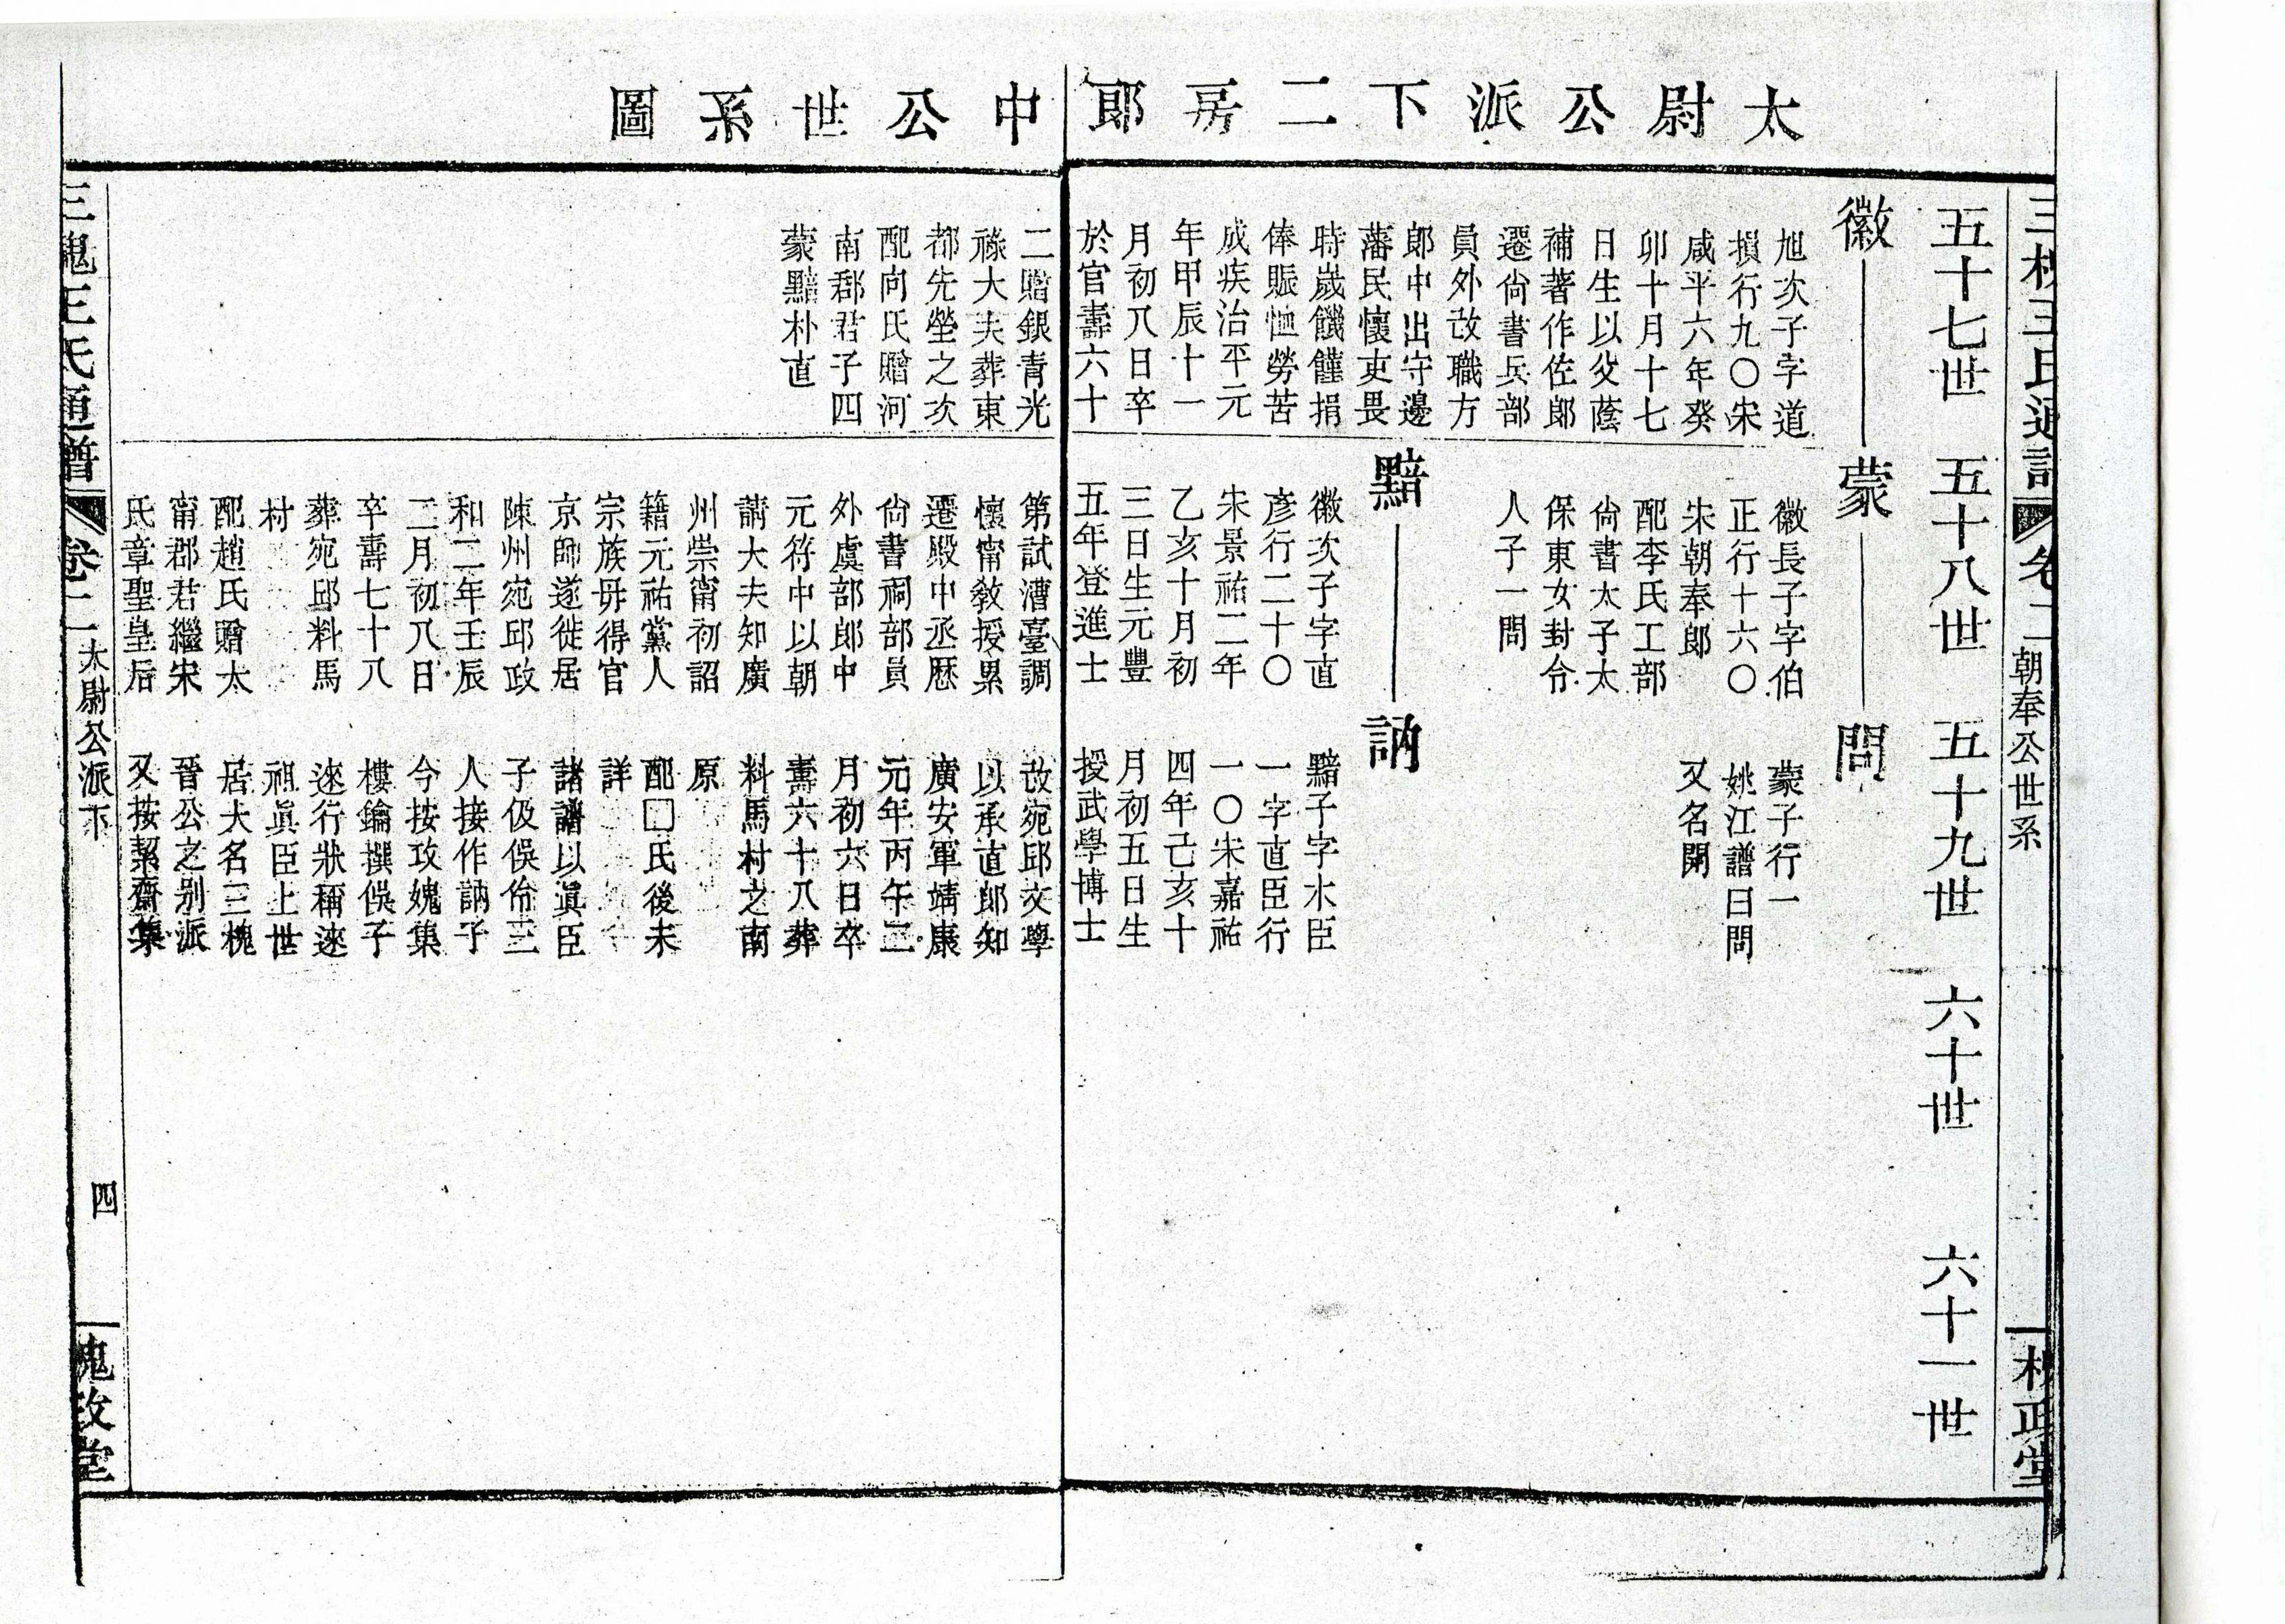 太尉公派下二房郎
中公世系圖
三槐王氏通譜 卷二 朝奉公世系 槐政堂
五十七世 五十八世 五十九世 六十世 六十一世
徽 蒙 問
旭次子字道
損行九〇宋
咸平六年癸
卯十月十七
日生以父蔭
補著作佐郎
遷尙書兵部
員外改職方
郎中出守邊
藩民懷吏畏
時歲饑饉捐
俸賑恤勞苦
成疾治平元
年甲辰十一
月初八日卒
於官壽六十
二贈銀青光
祿大夫葬東
都先塋之次
配向氏贈河
南郡君子四
蒙黯朴直
徽長子字伯
正行十六〇
宋朝奉郎
配李氏工部
尙書太子太
保東女封令
人子一問
黯 訥
徽次子字直
彥行二十〇
宋景祐二年
乙亥十月初
三日生元豐
五年登進士
第試漕臺調
懷甯敎授累
遷殿中丞歷
尙書祠部員
外虞部郎中
元符中以朝
請大夫知廣
州崇甯初詔
籍元祐黨人
宗族毋得官
京師遂徙居
陳州宛邱政
和二年壬辰
二月初八日
卒壽七十八
葬宛邱料馬
村
配趙氏贈太
甯郡君繼宋
氏章聖皇后
蒙子行一
姚江譜曰問
又名開
黯子字水臣
一字直臣行
一〇宋嘉祐
四年己亥十
月初五日生
授武學博士
改宛邱文學
以承直郎知
廣安軍靖康
元年丙午二
月初六日卒
壽六十八葬
料馬村之南
原
配□氏後未
詳
諸譜以眞臣
子伋俁佮三
人接作訥子
今按攻媿集
樓鑰撰俁子
逨行狀稱逨
祖眞臣上世
居大名三槐
晉公之別派
又按絜齋集
三槐王氏通譜 卷二 太尉公派下 四 槐政堂